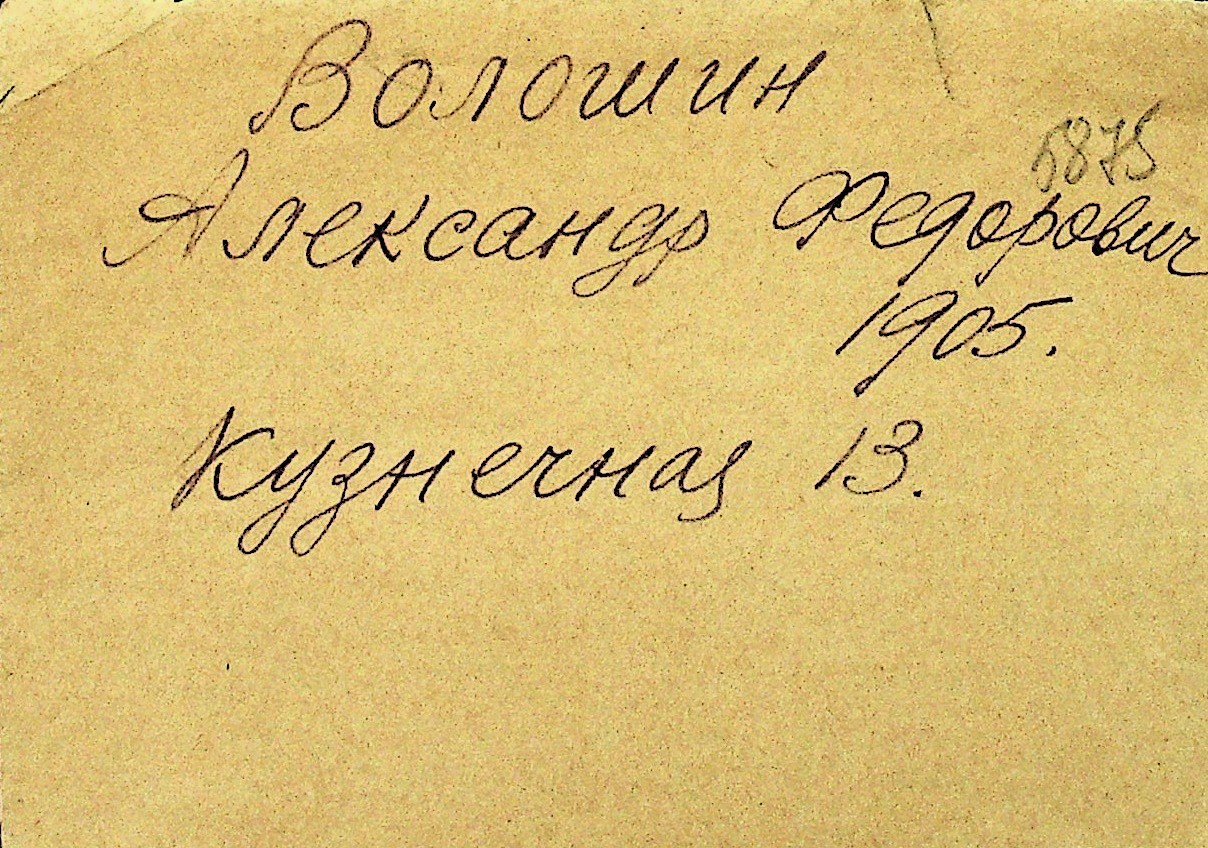 Волошин
5875
Александр Федорович
1905.
Кузнечная 13.